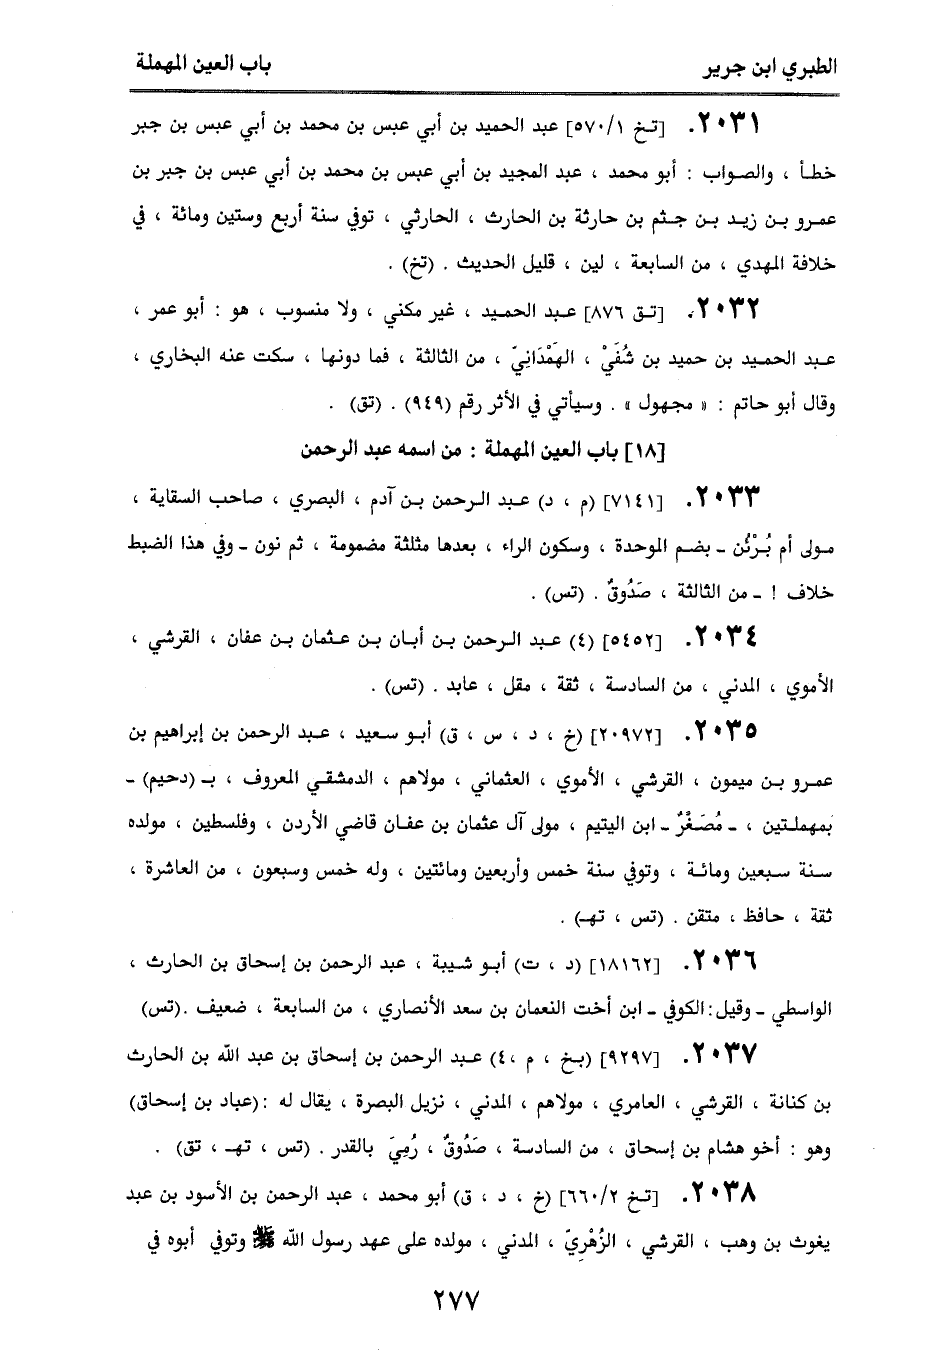 الطبري ابن جرير
باب العين المهملة
٢٠٣١. [تخ ٥٧٠/١] عبد الحميد بن أبي عبس بن محمد بن أبي عبس بن جبر
خطأ ، والصواب : أبو محمد ، عبد المجيد بن أبي عبس بن محمد بن أبي عبس بن جبر بن
عمرو بن زيد بن جثم بن حارثة بن الحارث ، الحارثي ، توفي سنة أربع وستين ومائة ، في
خلافة المهدي ، من السابعة ، لين ، قليل الحديث . (تخ) .
٢٠٣٢. [تق ٨٧٦] عبد الحميد ، غير مكني ، ولا منسوب ، هو : أبو عمر ،
عبد الحميد بن حميد بن شُفَيْ ، الهَمْدَانِيّ ، من الثالثة ، فما دونها ، سكت عنه البخاري ،
وقال أبو حاتم : « مجهول » . وسيأتي في الأثر رقم (٩٤٩) . (تق) .
[١٨] باب العين المهملة : من اسمه عبد الرحمن
٢٠٣٣. [٧١٤١] (م ، د) عبد الرحمن بن آدم ، البصري ، صاحب السقاية ،
مولى أم بُرْثُن ـ بضم الموحدة ، وسكون الراء ، بعدها مثلثة مضمومة ، ثم نون ـ وفي هذا الضبط
خلاف ! ـ من الثالثة ، صَدُوقٌ . (تس) .
٢٠٣٤. [٥٤٥٢] (٤) عبد الرحمن بن أبان بن عثمان بن عفان ، القرشي ،
الأموي ، المدني ، من السادسة ، ثقة ، مقل ، عابد . (تس) .
٢٠٣٥. [٢٠٩٧٢] (خ ، د ، س ، ق) أبو سعيد ، عبد الرحمن بن إبراهيم بن
عمرو بن ميمون ، القرشي ، الأموي ، العثماني ، مولاهم ، الدمشقي المعروف ، بـ (دحيم) ـ
بمهملتين ، ـ مُصَغْرٌ ـ ابن اليتيم ، مولى آل عثمان بن عفان قاضي الأردن ، وفلسطين ، مولده
سنة سبعين ومائة ، وتوفي سنة خمس وأربعين ومائتين ، وله خمس وسبعون ، من العاشرة ،
ثقة ، حافظ ، متقن . (تس ، تهـ) .
٢٠٣٦. [١٨١٦٢] (د ، ت) أبو شيبة ، عبد الرحمن بن إسحاق بن الحارث ،
الواسطي ـ وقيل : الكوفي ـ ابن أخت النعمان بن سعد الأنصاري ، من السابعة ، ضعيف . (تس)
٢٠٣٧. [٩٢٩٧] (بخ ، م ،٤) عبد الرحمن بن إسحاق بن عبد الله بن الحارث
بن كنانة ، القرشي ، العامري ، مولاهم ، المدني ، نزيل البصرة ، يقال له : (عباد بن إسحاق)
وهو : أخو هشام بن إسحاق ، من السادسة ، صَدُوقٌ ، رُمِيَ بالقدر . (تس ، تهـ ، تق) .
٢٠٣٨. [تخ ٦٦٠/٢] (خ ، د ، ق) أبو محمد ، عبد الرحمن بن الأسود بن عبد
يغوث بن وهب ، القرشي ، الزُهْرِيّ ، المدني ، مولده على عهد رسول الله ﷺ وتوفي أبوه في
٢٧٧